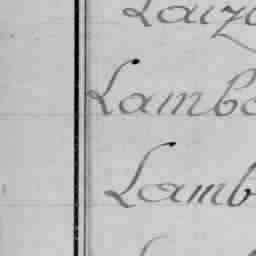 Laiz
Lamb
Lamb